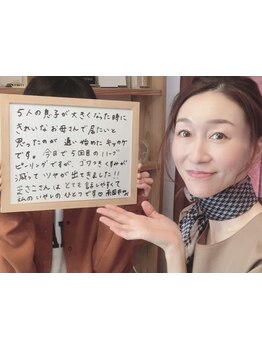 5人の息子が大きくなった時に
きれいなお母さんで居たいと
思ったのが通い始めたキッカケ
です。今日で5回目のハーブ
ピーリングですが、ゴワつきくすみが
減ってツヤが出てきました!!
さこさんは とても話しやすくて
私のいやしのひとつです♡